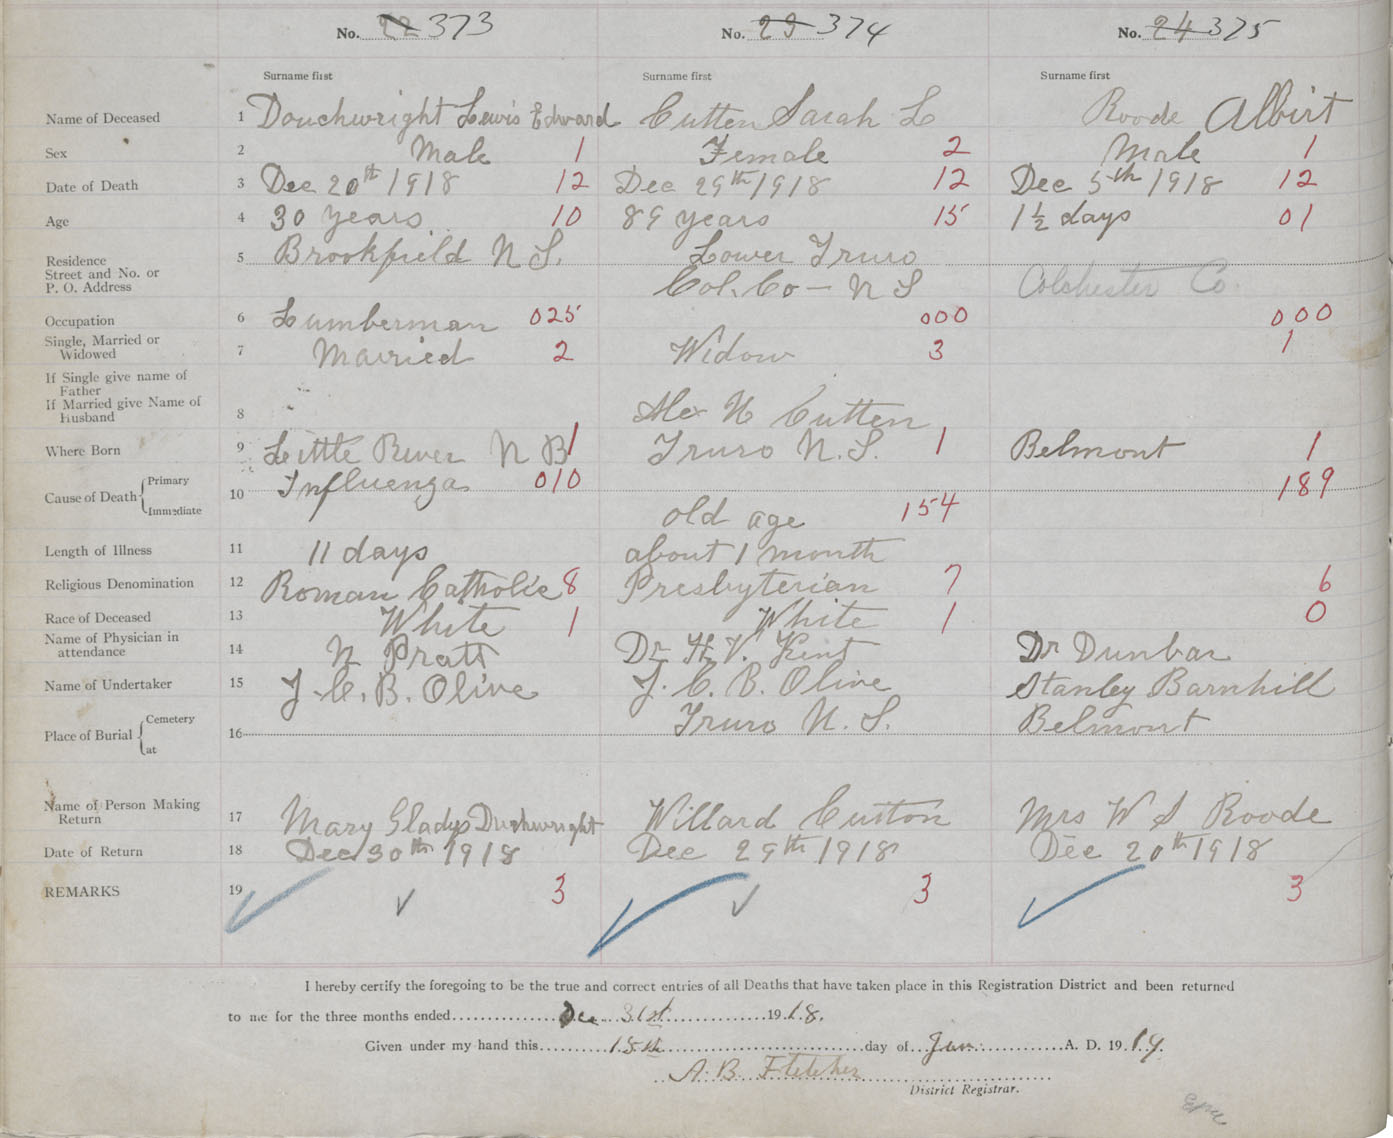 No. 22 373 No. 23 374 No. 24 375
Surname first Surname first Surname first
Name of Deceased 1 Douchwright Lewis Edward Cutten Sarah L Roode Albirt
Sex 2 Male 1 Female 2 Male 1
Date of Death 3 Dec 20th 1918 12 Dec 29th 1918 12 Dec 5th 1918 12
Age 4 30 years 10 89 years 15 1½ days 01
Residence Street and No. or P. O. Address 5 Brookfield N S. Lower Truro
Col. Co - N S Colchester Co.
Occupation 6 Lumberman 025 000 000
Single, Married or Widowed 7 Married 2 Widow 3 1
If Single give name of
Father
If Married give Name of
Husband 8 Alex N Cutten
Where Born 9 Little River N B 1 Truro N. S. 1 Belmont 1
Cause of Death Primary 10 Influenza 010 189
Immediate old age 154
Length of Illness 11 11 days about 1 month
Religious Denomination 12 Roman Catholic 8 Presbyterian 7 6
Race of Deceased 13 White 1 White 1 0
Name of Physician in attendance 14 N Pratt Dr H. V. Kent Dr Dunbar
Name of Undertaker 15 J. C. B. Olive J. C. B. Olive Stanley Barnhill
Place of Burial Cemetery at 16 Truro N. S. Belmont
Name of Person Making Return 17 Mary Gladys Duchwright Willard Cutton Mrs W S Roode
Date of Return 18 Dec 30th 1918 Dec 29th 1918 Dec 20th 1918
REMARKS 19 3 3 3
I hereby certify the foregoing to be the true and correct entries of all Deaths that have taken place in this Registration District and been returned
to me for the three months ended Dec 31st 1918.
Given under my hand this 15th day of Jan. A. D. 1919.
A. B. Fletcher
District Registrar.